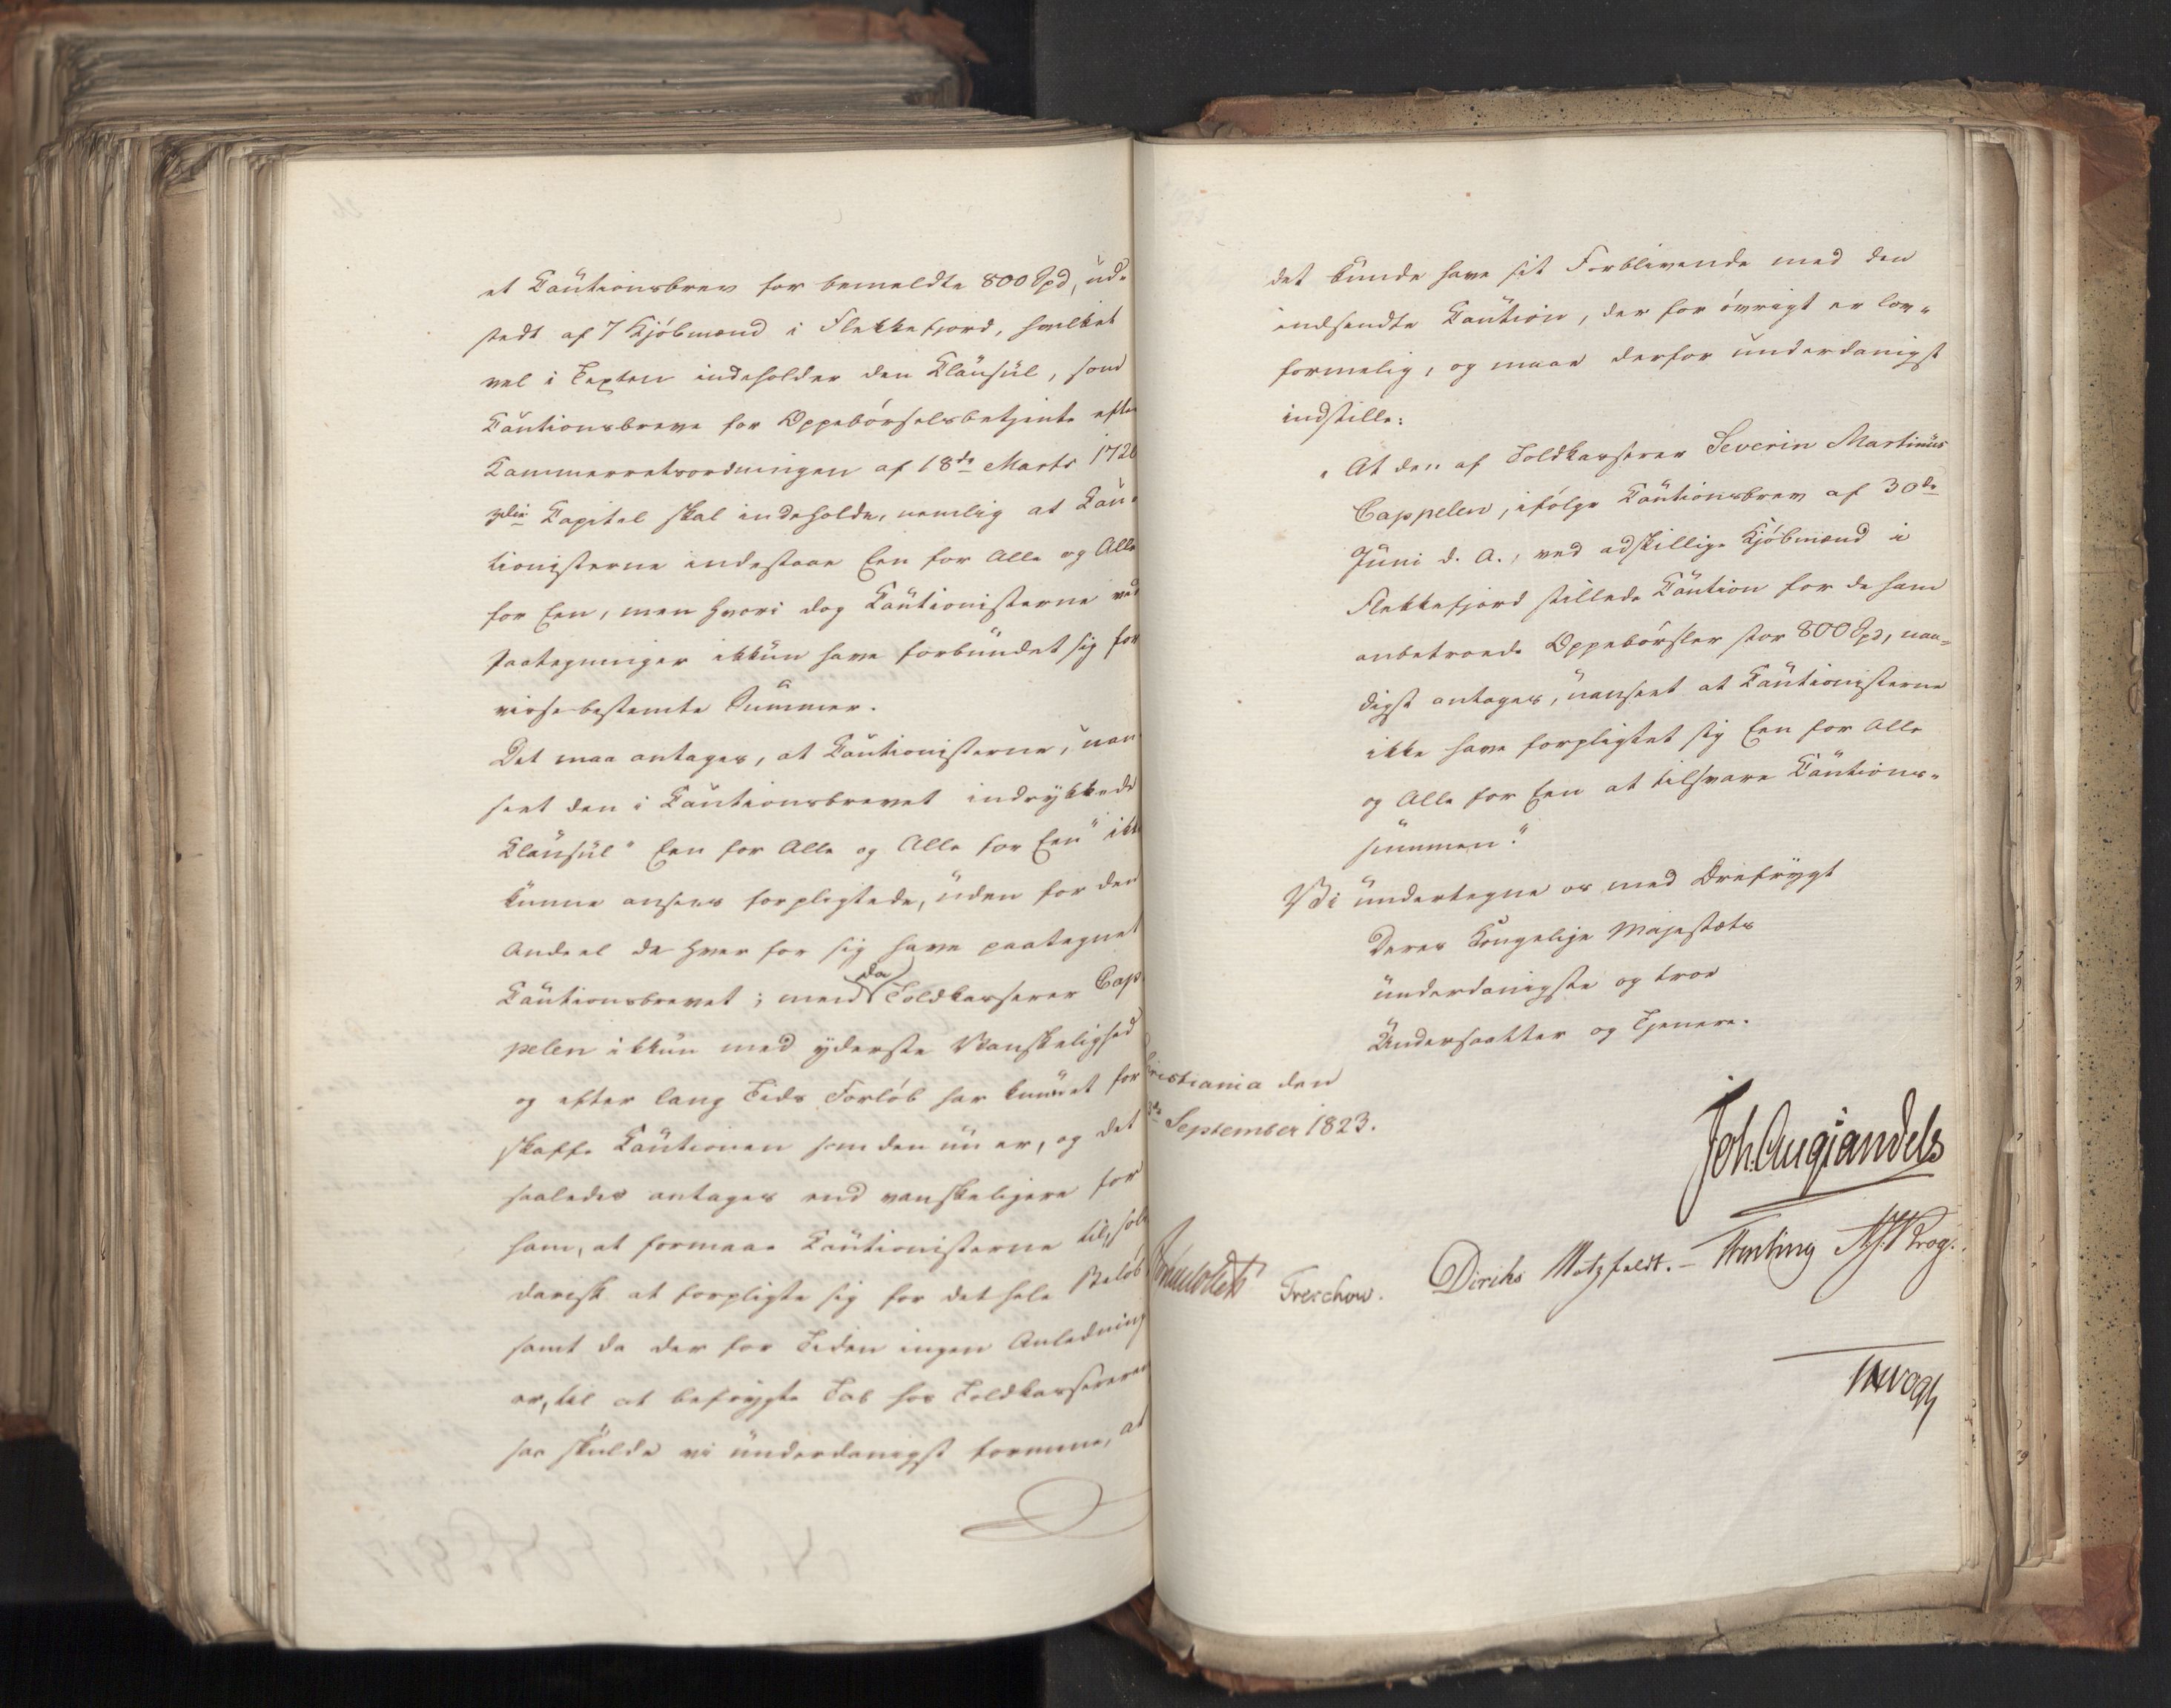 et Cautionsbrev for bemeldte 800 Spd, ud-
stedt af 7 Kjöbmænd i Flekkefjord, hvilket
vel i Texten indeholder den Clausul, som
Cautionsbreve for Oppebörselsbetjente efter
Kammerretsordningen af 18de Marts 1720
3die Capitel skal indeholde, nemlig at Cau-
tionisterne indestaae Een for Alle og Alle
for Een, men hvori dog Cautionisterne ved
Paategninger ikkun have forbundet sig for
visse bestemte Summer.
Det maa antages, at Cautionisterne, uan-
seet den i Cautionsbrevet indrykkede
Clausul "Een for Alle og Alle for Een" ikke
kunne ansees forpligtede, uden for den
Andeel de hver for sig have paategnet
Cautionsbrevet; men da Toldkasserer Cap-
pelen ikkun med yderste Vanskelighed
og efter lang Tids Forlöb har kunnet for
skaffe Cautionen som den nu er, og det
saaledes antages end vanskeligere for
ham, at formaae Cautionisterne til, soli
darisk at forpligte sig for det hele Belöb
samt da der for Tiden ingen Anledning
er, til at befrygte Tab hos Toldkassereren
saa skulde vi underdanigst formene, at
det kunde have sit Forblivende med den
indsendte Caution, der for övrigt er lov-
formelig, og maae derfor underdanigst
indstille:
"At den af Toldkasserer Severin Martinus
Cappelen, ifölge Cautionsbrev af 30de
Juni d. A., ved adskillige Kjöbmænd i
Flekkefjord stillede Caution for de ham
anbetroede Oppebörsler stor 800 Spd, naa-
digst antages, uanseet at Cautionisterne
ikke have forpligtet sig Een for Alle
og Alle for Een at tilsvare Cautions-
summen."
Vi undertegne os med Ærefrygt
Deres Kongelige Majestæts
underdanigste og troe
Undersaatter og Tjenere.
Christiania den
September 1823.
Joh. Aug. Sandels
Treschow. Diriks Motzfeldt. – Krog.